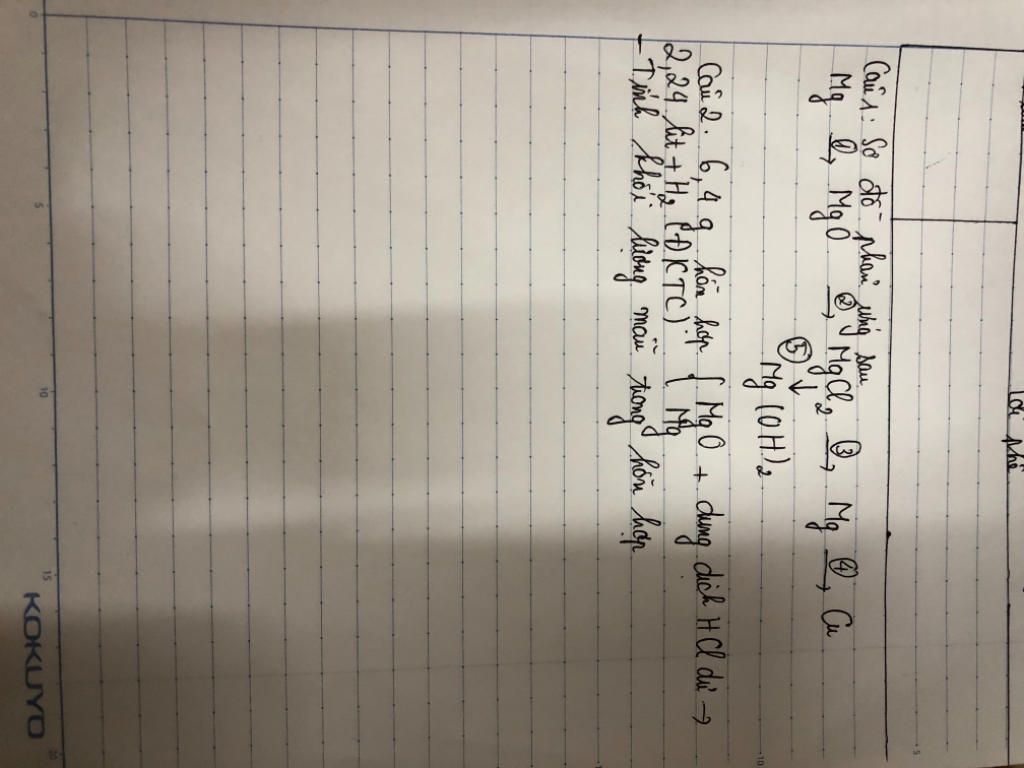 Lời phê
Câu 1: Sơ đồ phản ứng sau
Mg ①→ MgO ②→ MgCl₂ ③→ Mg ④→ Cu
⑤ ↓
Mg(OH)₂
Câu 2. 6,4 g hỗn hợp { MgO + dung dịch HCl dư →
2,24 lít + H₂ (ĐKTC) { Mg
- Tính khối lượng mỗi trong hỗn hợp
0 5 10 15 20
5 10
KOKUYO